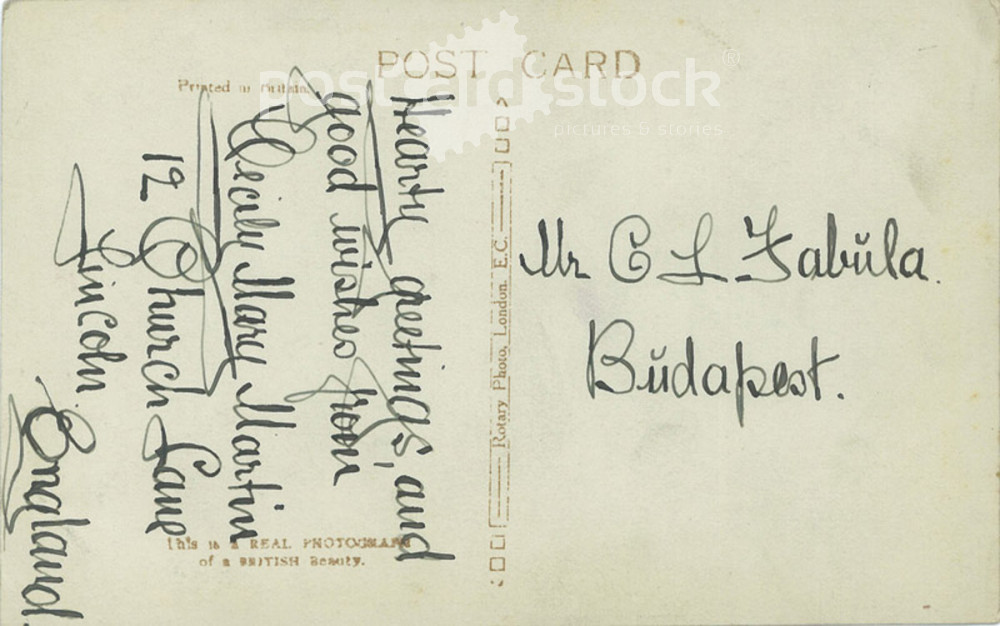 POST CARD
Printed in Britain.
postcardstock®
pictures & stories
Hearty greetings, and
good wishes from
Cecily Mary Martin
12 Church Lane
Lincoln.
England.
Rotary Photo, London. E.C.
Mr C L Fabŭla.
Bŭdapest.
This is a REAL PHOTOGRAPH
of a BRITISH Beauty.